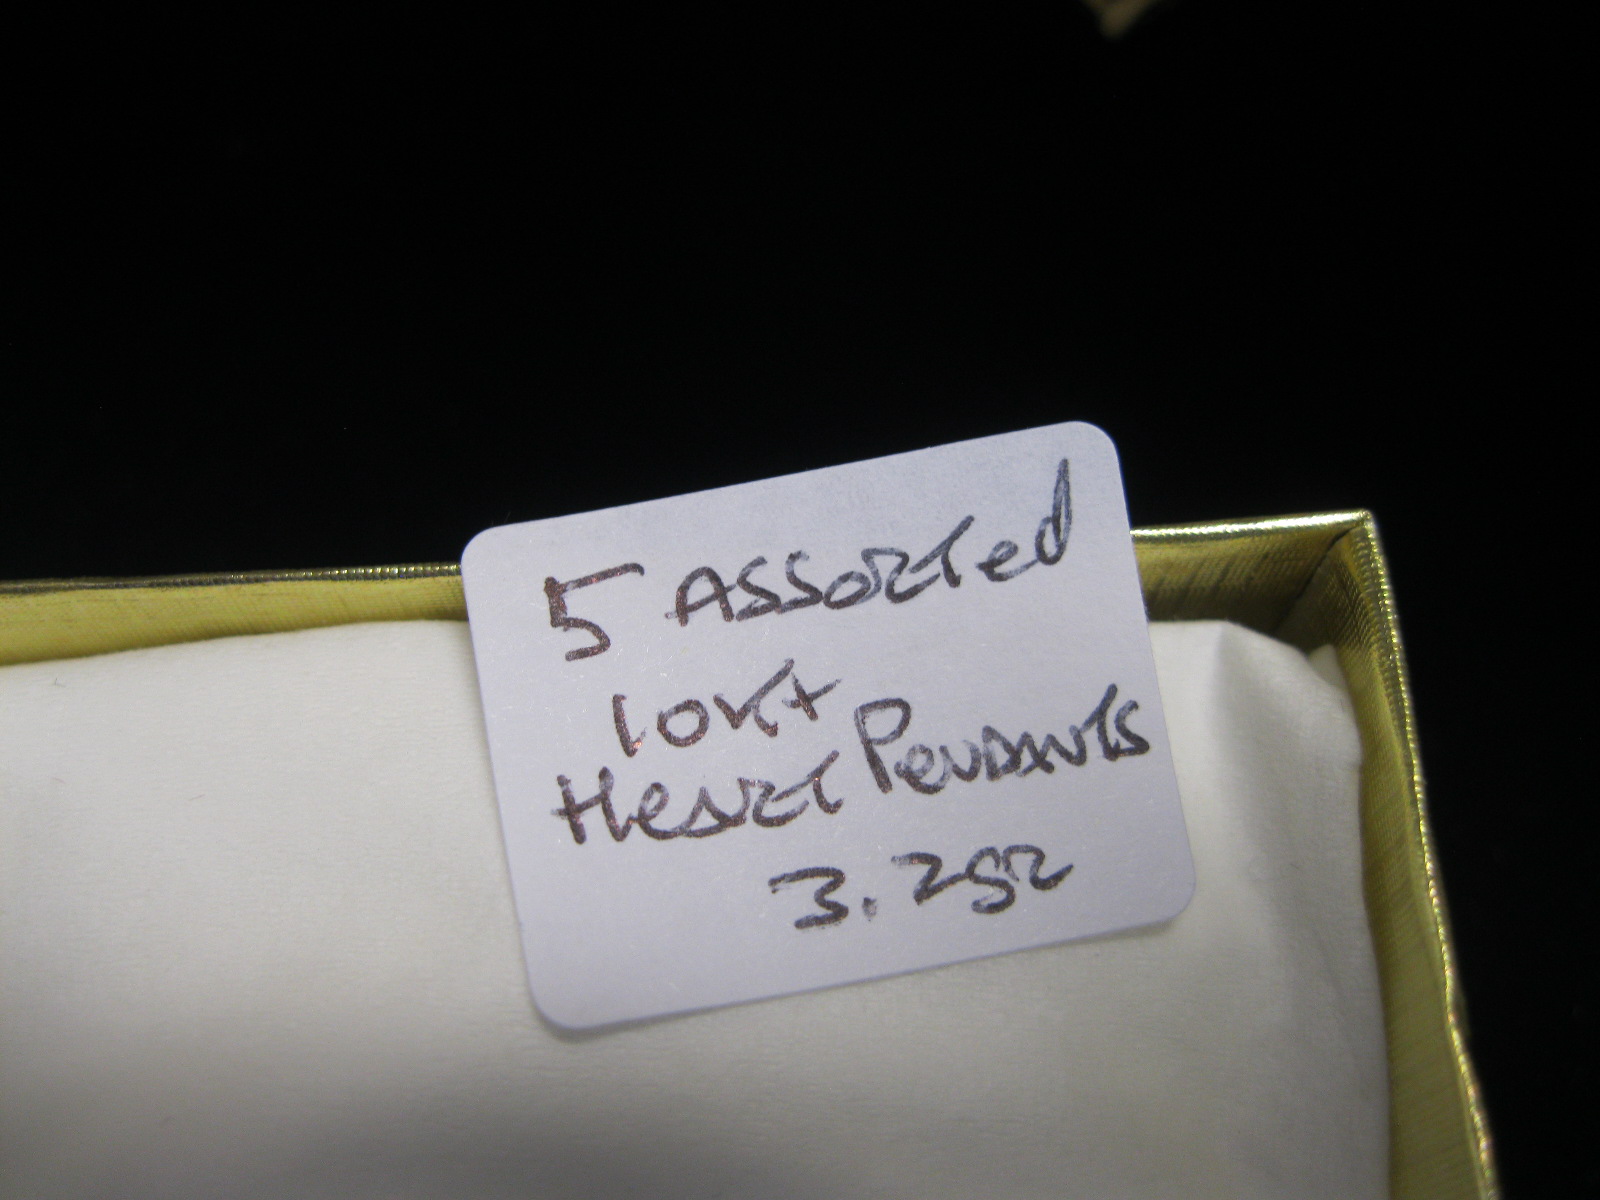 5 Assorted
10kt
Heart Pendants
3.2gr